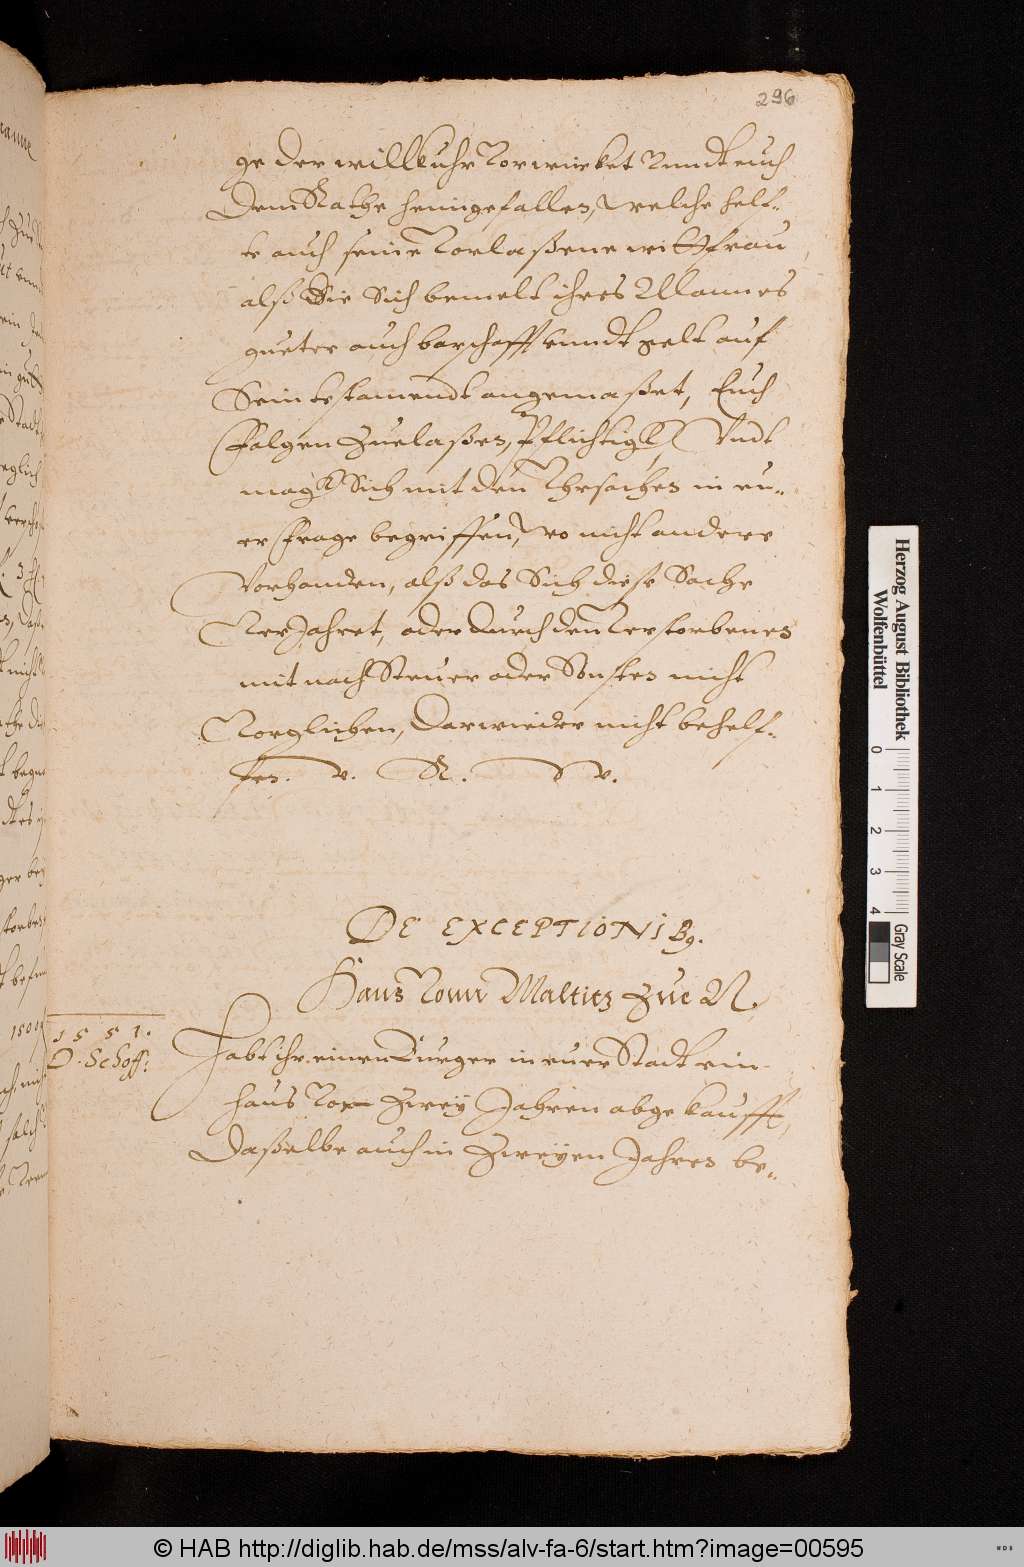 296
ge der willkuhr vorwircket vnndt euch
Dem Rathe heimgefallen, welche helf-
te auch seine vorlaßene wittfrau
alß Sie Sich bemelt ihres Mannes
gueter auch barschafft vnndt gelt auf
Sein testamendt angemaßet, Euch
Folgen Zuelaßen, Pflichtigk, Vndt
magk Sich mit den Vhrsachen in eu-
er frage begriffen, wo nicht andere
Vorhanden, alß das Sich diese Sache
VerJahret, oder durch den verstorbenen
mit nach Steuer oder Sonsten nicht
Vorglichen, Darwieder nicht behelf-
fen. v. R. w.
DE EXCEPTIONIB9.
Hans vonn Maltitz Zue N.
1551.
D. Schoff:
Habt ihr einen Burger in euer Stadt ein
haus vor Zwey Jahren abgekaufft,
Daßelbe auch in Zweyen Jahren be-
Herzog August Bibliothek
Wolfenbüttel
0 1 2 3 4
Gray Scale
© HAB http://diglib.hab.de/mss/alv-fa-6/start.htm?image=00595